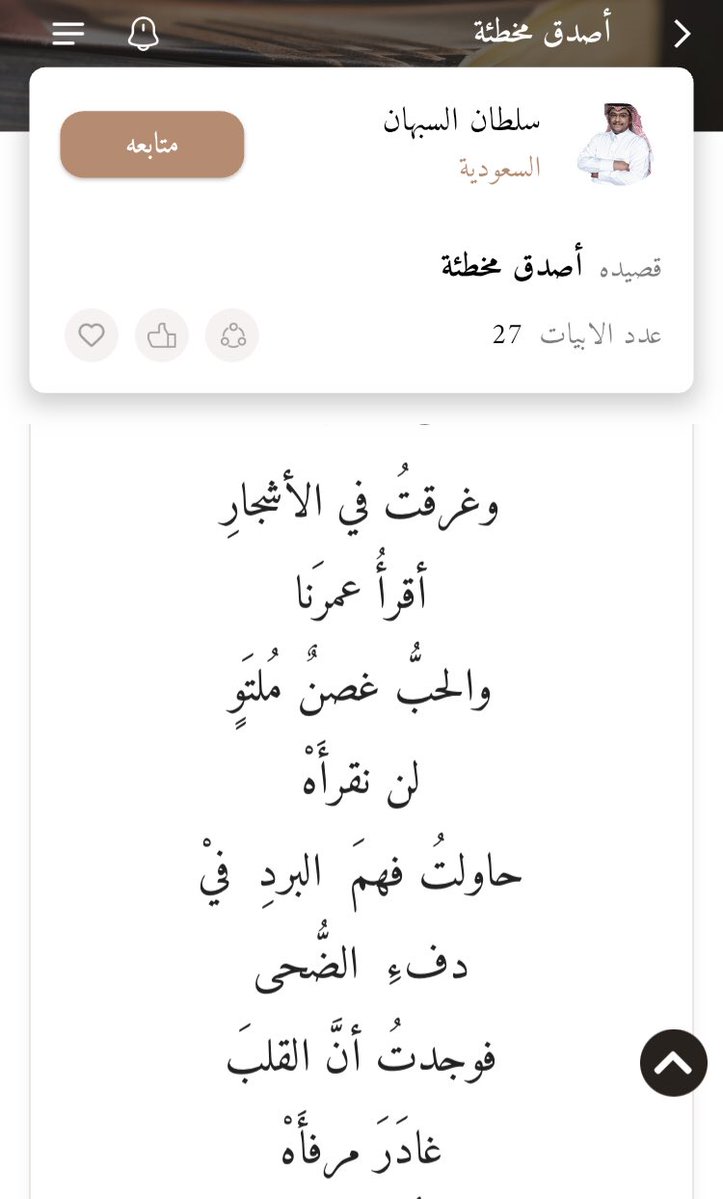 أصدق مخطئة
سلطان السبهان
السعودية
متابعه
قصيده أصدق مخطئة
عدد الابيات 27
وغرقتُ في الأشجارِ
أقرأُ عمرَنا
والحبُّ غصنٌ مُلتَوٍ
لن نقرأَهْ
حاولتُ فهمَ البردِ فيْ
دفءِ الضُّحى
فوجدتُ أنَّ القلبَ
غادَرَ مرفأَهْ